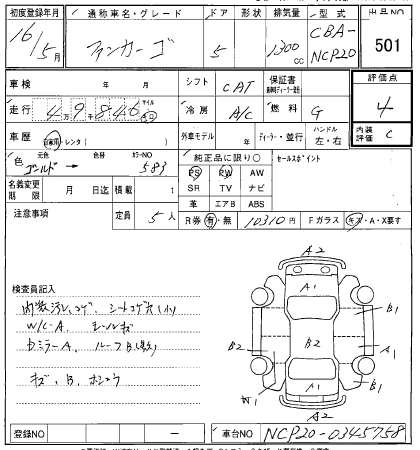 初度登録年月 通称車名・グレード ドア 形状 排気量 型式 出品NO
16/5月 ファンカーゴ 5 1300cc CBA-NCP20 501
車検 年 月 シフト CAT 保証書 評価点
走行 4万9千846 マイル km 冷房 A/C 燃料 G 4
車歴 自家用・レンタ( ) 外車モデル 年 ディーラー・並行 ハンドル 左・右 内装評価 C
色 元色 ゴールド 色替 カラーNO 583 純正品に限り○ セールスポイント
PS PW AW
名義変更期限 月 日迄 積載 t SR TV ナビ
革 エアB ABS
注意事項 定員 5人 R券 有・無 10310円 Fガラス キズ・A・X要す
検査員記入
内装汚レ、コゲ、シートコゲ穴(小)
W/C-A、モールキズ
Dミラー A、ルーフB(数)
キズ、B、ホシュウ
A2
A1
B1
B2 B2 A1
W1 A1
A2
登録NO － 車台NO NCP20-0345758